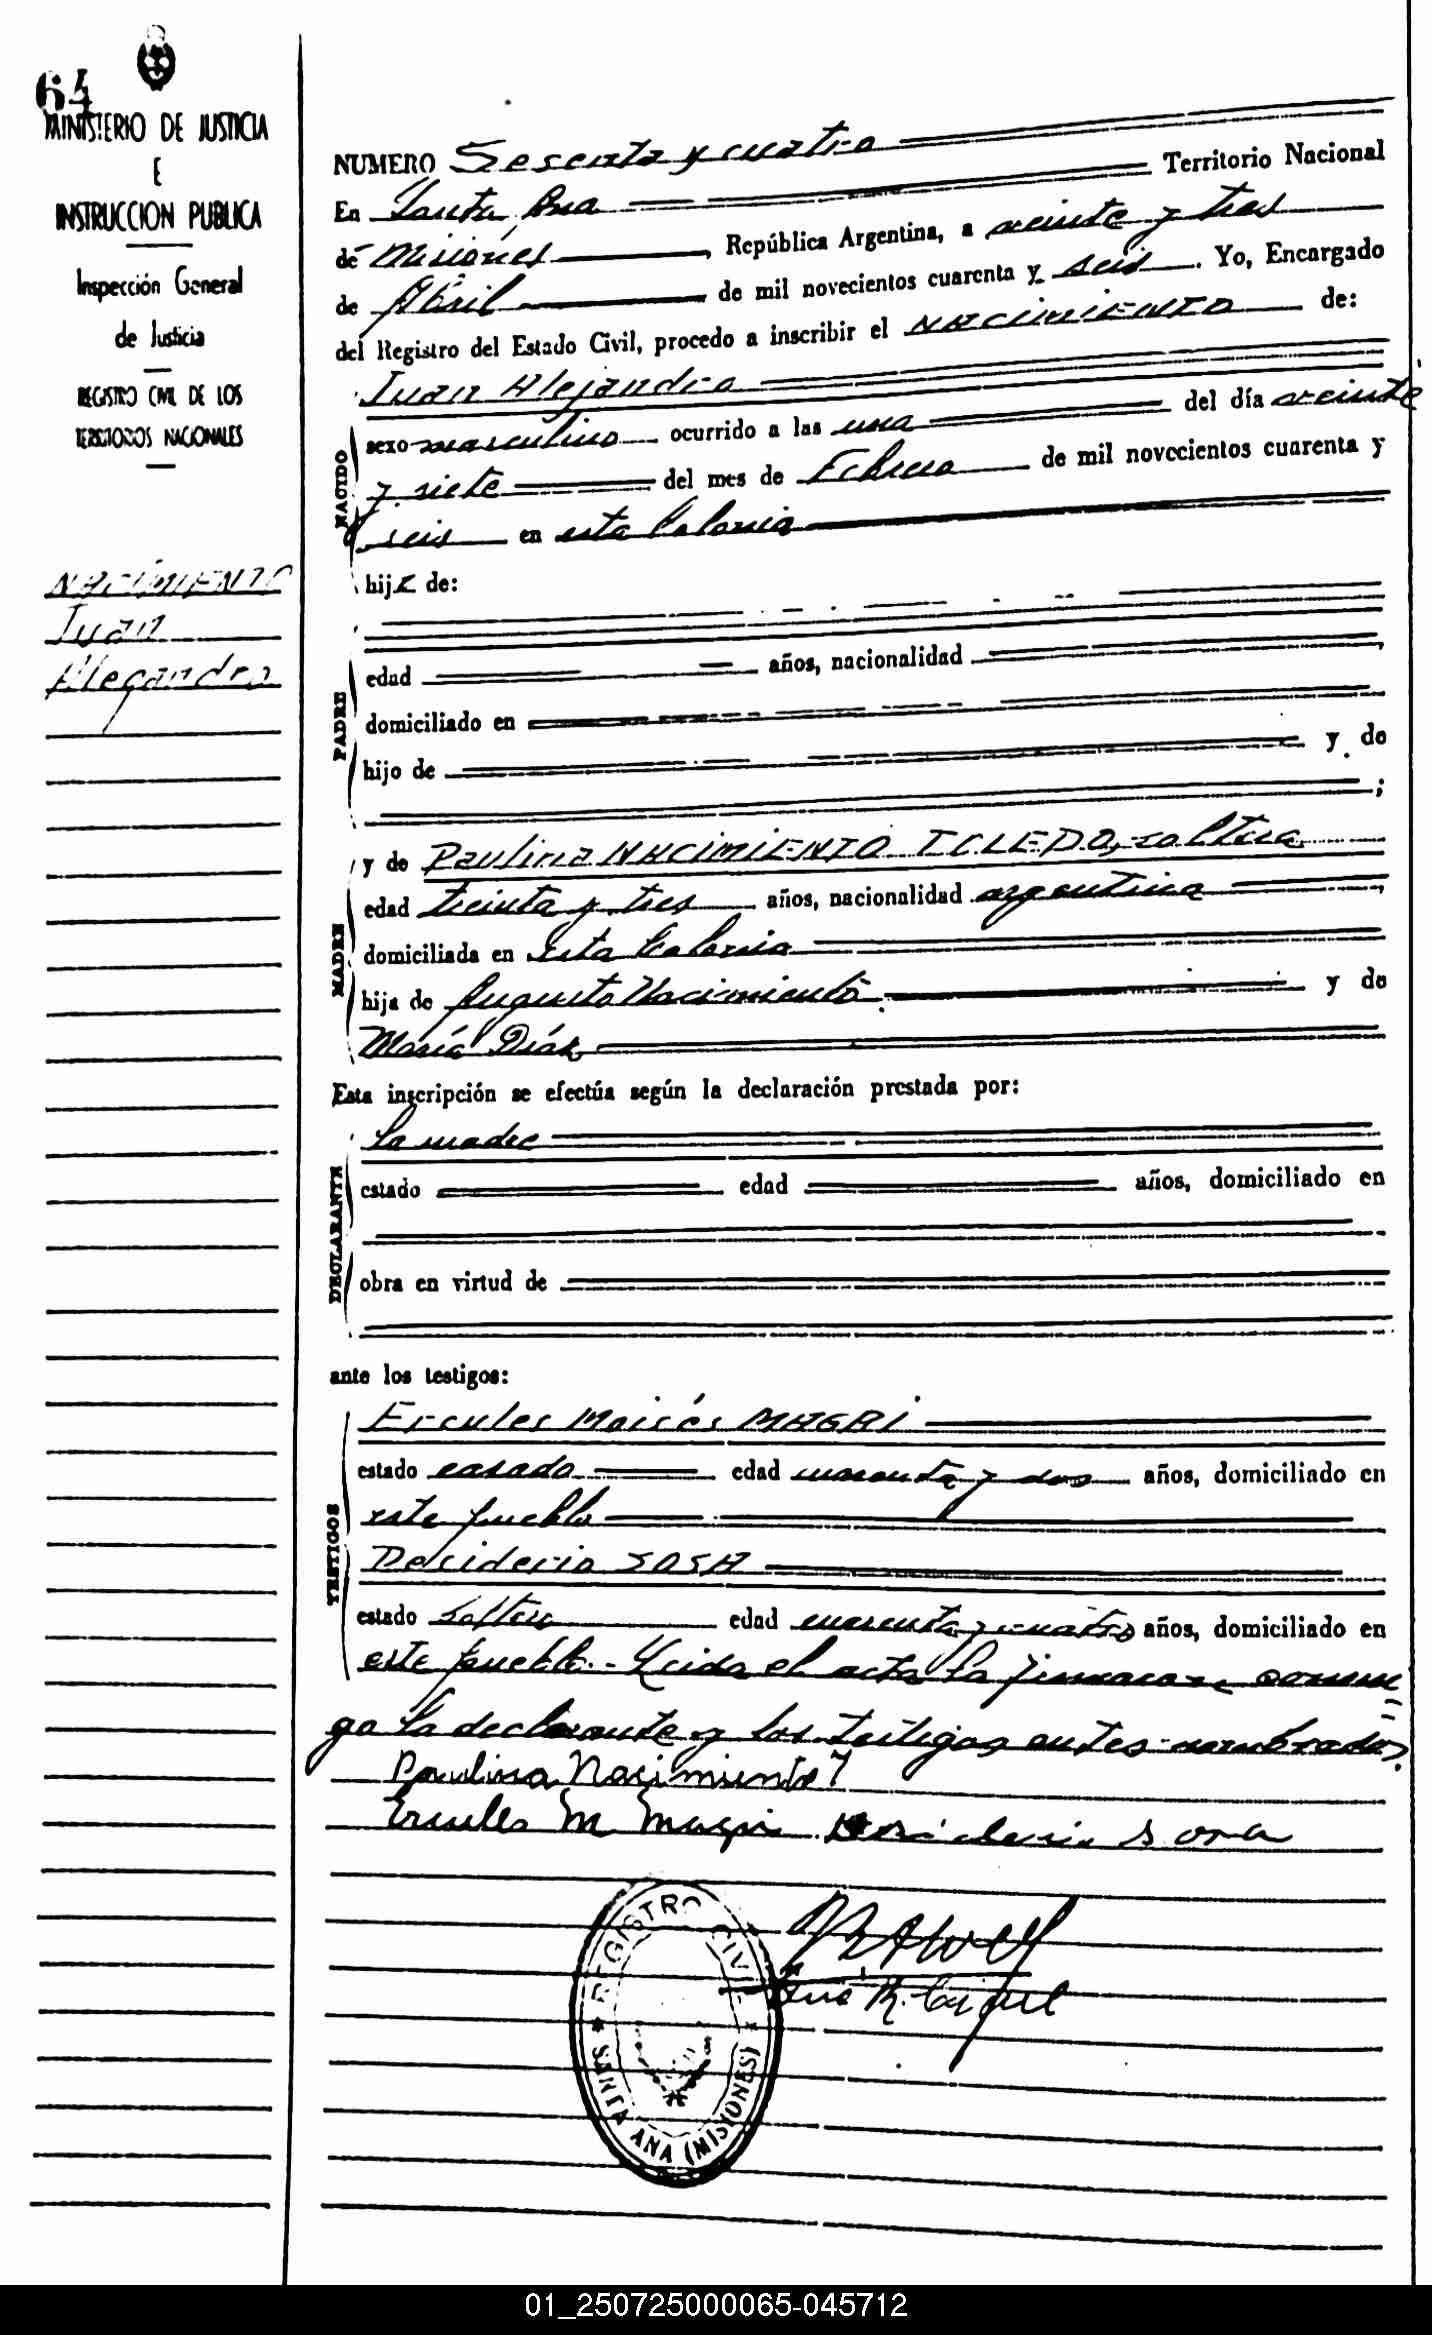 64
MINISTERIO DE JUSTICIA
E
INSTRUCCION PUBLICA
Inspección General
de Justicia
REGISTRO CIVIL DE LOS
TERRITORIOS NACIONALES
NACIMIENTO
Juan
Alejandro
NUMERO Sesenta y cuatro
En Santa Ana Territorio Nacional
de Misiones, República Argentina, a veinte y tres
de Abril de mil novecientos cuarenta y seis. Yo, Encargado
del Registro del Estado Civil, procedo a inscribir el NACIMIENTO de:
Juan Alejandro
NACIDO
sexo masculino ocurrido a las una del día veinte
y siete del mes de Febrero de mil novecientos cuarenta y
seis en esta Colonia
hijo de:
PADRE
edad años, nacionalidad
domiciliado en
hijo de y de
;
MADRE
y de Paulina NACIMIENTO TOLEDO, soltera
edad treinta y tres años, nacionalidad argentina
domiciliada en esta Colonia
hija de Augusto Nacimiento y de
María Diáz
Esta inscripción se efectúa según la declaración prestada por:
DECLARANTE
La madre
estado edad años, domiciliado en
obra en virtud de
ante los testigos:
TESTIGOS
Ercules Moisés MAGRI
estado casado edad cuarenta y dos años, domiciliado en
este pueblo
Desiderio SOSA
estado soltero edad cuarenta y cuatro años, domiciliado en
este pueblo.- Leida el acta la firmaron conmi=
go la declarante y los testigos antes nombrados.
Paulina Nacimiento T
Ercules M Magri Desiderio Sosa
REGISTRO CIVIL
SANTA ANA (MISIONES)
01_250725000065-045712